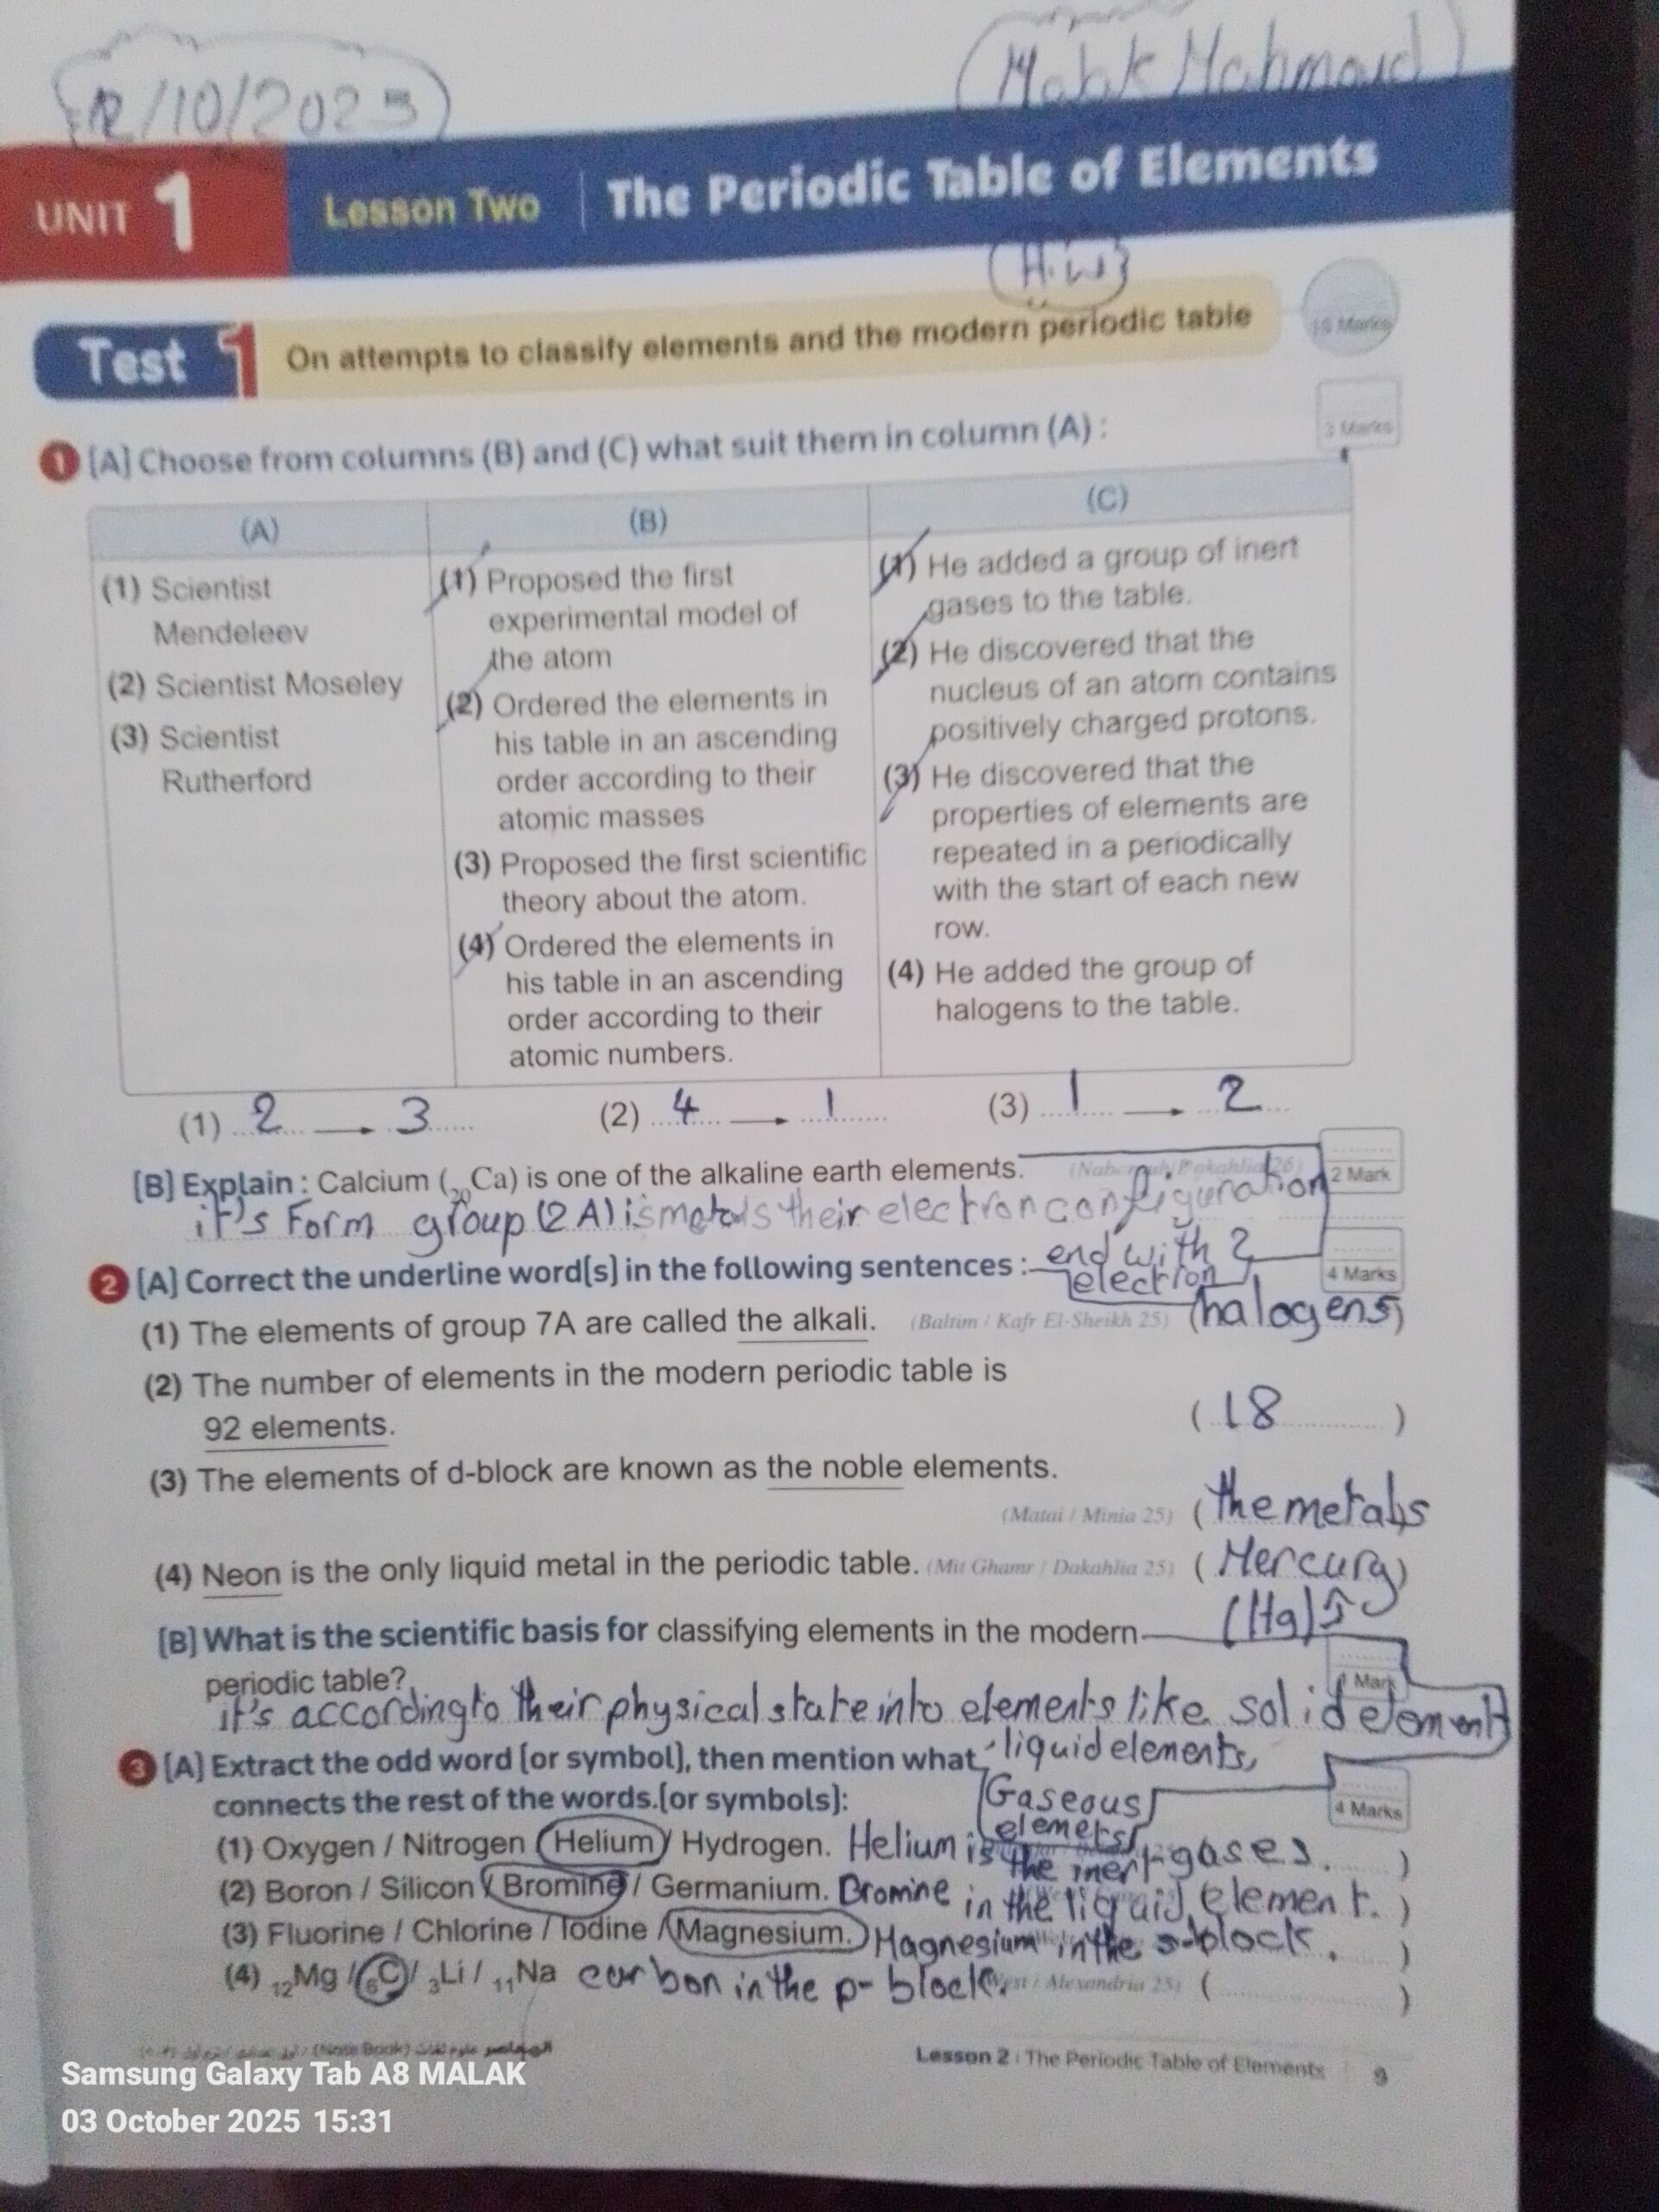 12/10/2025
Malak Mahmoud
UNIT 1
Lesson Two
The Periodic Table of Elements
(H.W)
Test 1
On attempts to classify elements and the modern periodic table
15 Marks
1 [A] Choose from columns (B) and (C) what suit them in column (A) :
3 Marks
(A)
(1) Scientist
Mendeleev
(2) Scientist Moseley
(3) Scientist
Rutherford
(B)
(1) Proposed the first
experimental model of
the atom
(2) Ordered the elements in
his table in an ascending
order according to their
atomic masses
(3) Proposed the first scientific
theory about the atom.
(4) Ordered the elements in
his table in an ascending
order according to their
atomic numbers.
(C)
(1) He added a group of inert
gases to the table.
(2) He discovered that the
nucleus of an atom contains
positively charged protons.
(3) He discovered that the
properties of elements are
repeated in a periodically
with the start of each new
row.
(4) He added the group of
halogens to the table.
(1) 2 → 3 (2) 4 → 1 (3) 1 → 2
[B] Explain : Calcium (₂₀Ca) is one of the alkaline earth elements.
2 Mark
it's Form group (2A) is metals their electron configuration
end with 2
electron
2 [A] Correct the underline word(s) in the following sentences :
4 Marks
(1) The elements of group 7A are called the alkali. (Baltim / Kafr El-Sheikh 25) (halogens)
(2) The number of elements in the modern periodic table is
92 elements. (18)
(3) The elements of d-block are known as the noble elements.
(Matai / Minia 25) (the metals
(4) Neon is the only liquid metal in the periodic table. (Mit Ghamr / Dakahlia 25) (Mercury)
(Hg)
[B] What is the scientific basis for classifying elements in the modern
periodic table?
1 Mark
it's according to their physical state into elements like solid element
liquid elements,
Gaseous
elemets
3 [A] Extract the odd word (or symbol), then mention what
connects the rest of the words.(or symbols):
4 Marks
(1) Oxygen / Nitrogen / Helium / Hydrogen. Helium is the inert gases. )
(2) Boron / Silicon / Bromine / Germanium. Bromine in the liquid element. )
(3) Fluorine / Chlorine / Iodine / Magnesium. Magnesium in the s-block. )
(4) ₁₂Mg / ₆C / ₃Li / ₁₁Na carbon in the p-block. West / Alexandria 25) ( )
Lesson 2 : The Periodic Table of Elements 9
Samsung Galaxy Tab A8 MALAK
03 October 2025 15:31